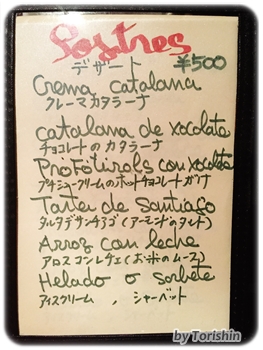 Postres
デザート ¥500
Crema catalana
クレーマカタラーナ
catalana de xocolate
チョコレートのカタラーナ
Profótirols con xocolate
プチシュークリームのホットチョコレートガケ
Tarta de santiago
タルタデサンチアゴ(アーモンドのタルト)
Arroz con leche
アロスコンレチェ(お米のムース)
Helado o sorbete
アイスクリーム 、シャーベット
by Torishin